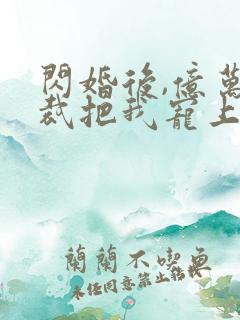 閃婚後,億萬
裁把我寵上
蘭蘭不喫魚
未经同意禁止转载